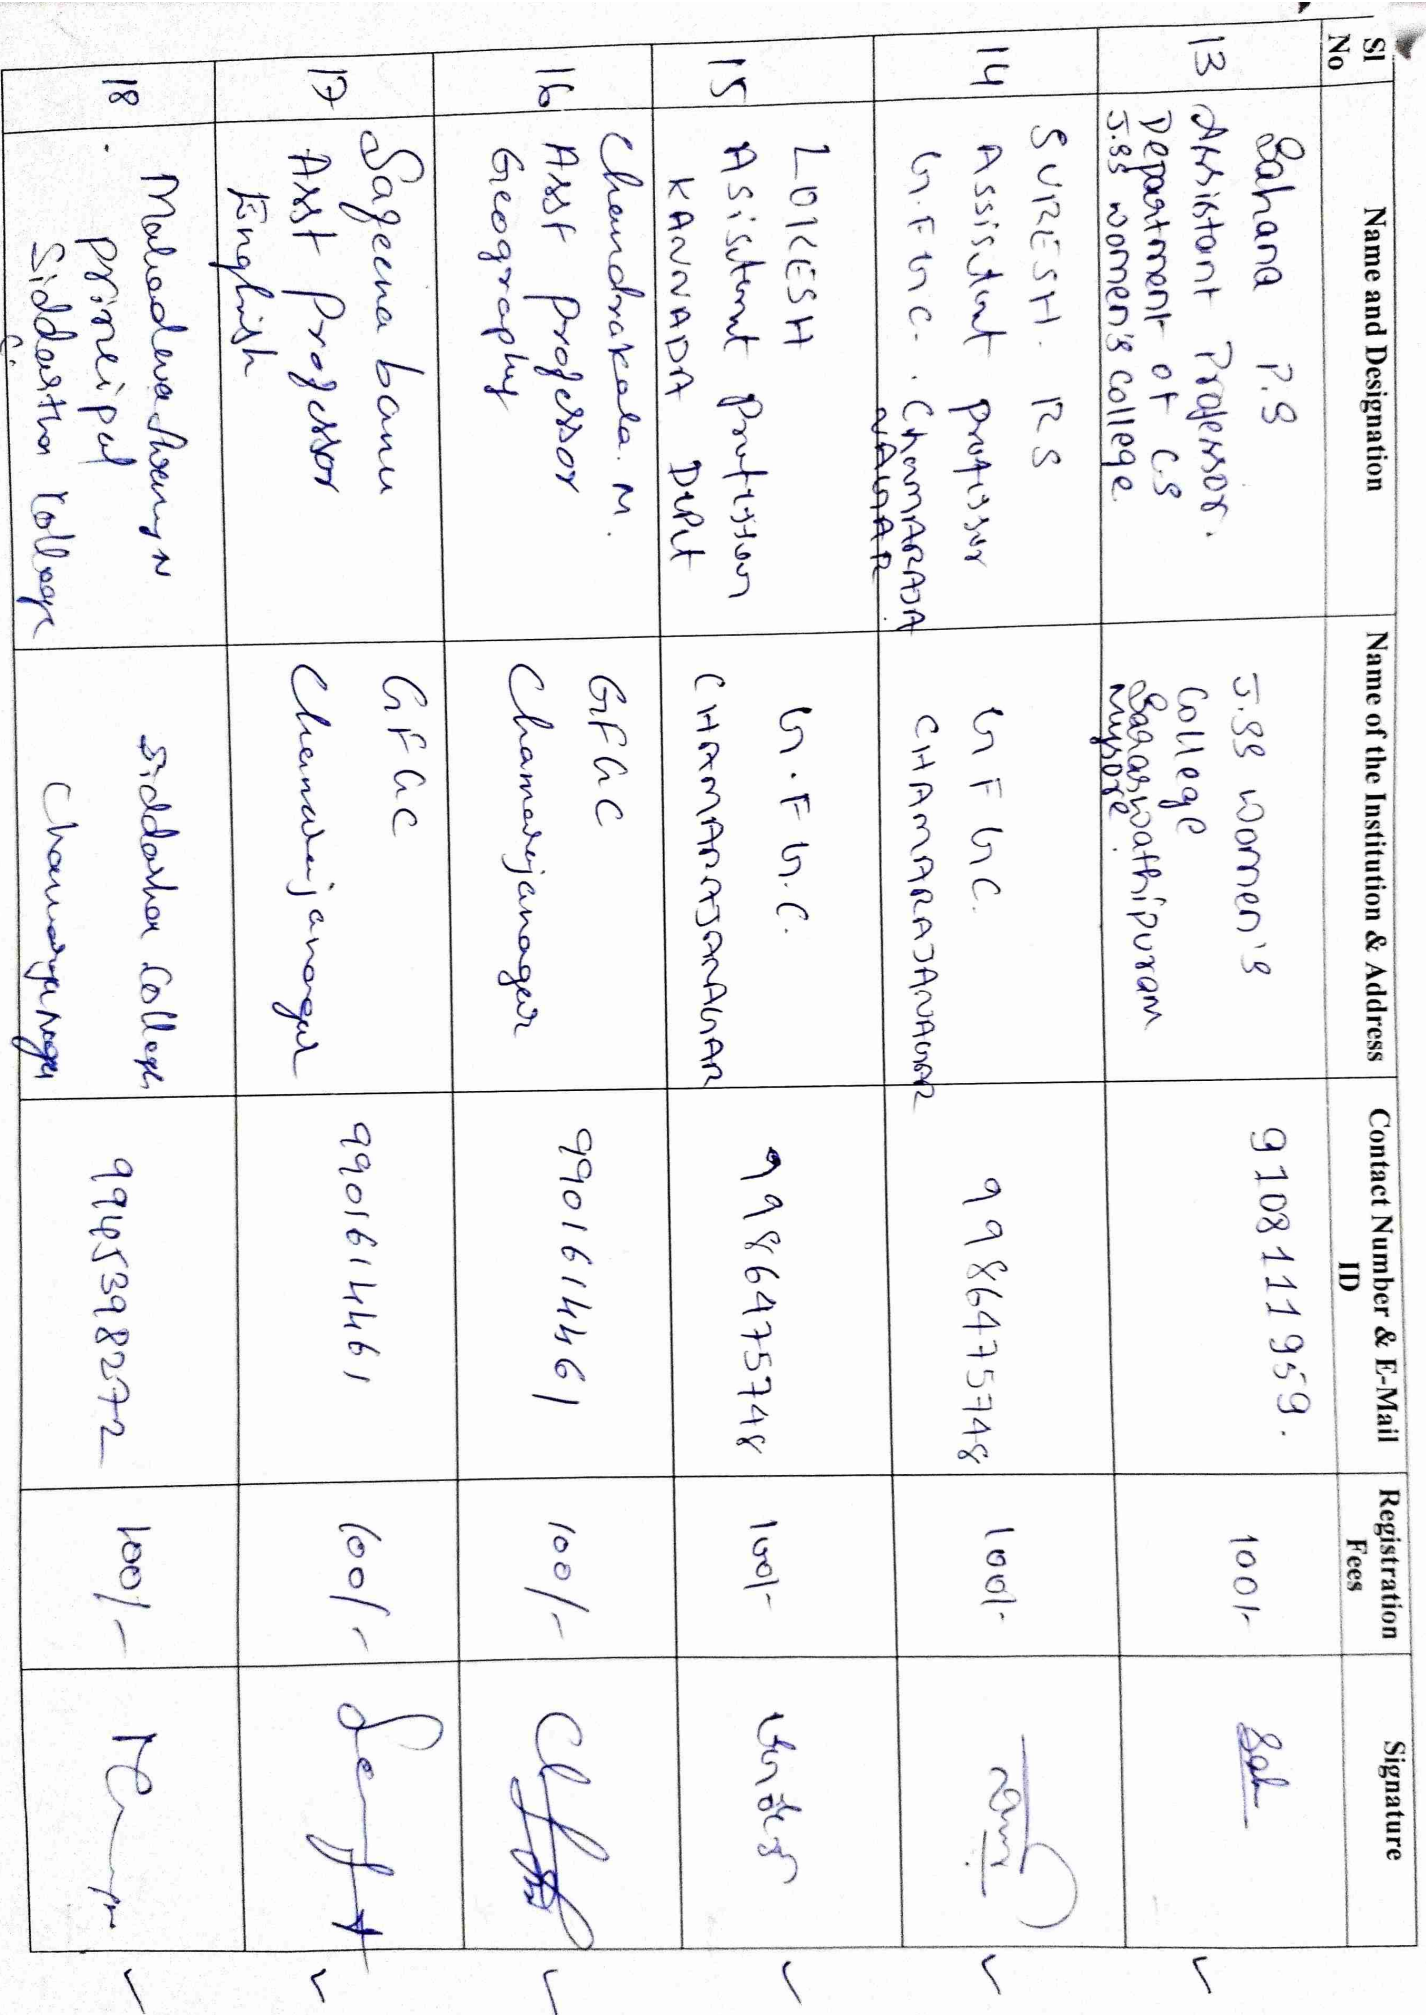 Sl No
Name and Designation
Name of the Institution & Address
Contact Number & E-Mail ID
Registration Fees
Signature
13
Sahana P.S
Assistant Professor.
Department of CS
J.SS women's college
J.SS women's
College
Saraswathipuram
Mysore.
9108111959.
100/-
14
SURESH. RS
Assistant professor
G.F G C. CHAMARAJA
NAGAR
G F G C.
CHAMARAJANAGAR
9986475748
100/-
15
LOKESH
Assistant
KANNADA Dept
G.F G.C.
CHAMARAJANAGAR
9986475748
100/-
16
Chandrakala. M.
Asst Professor
Geography
GFGC
Chamarajanagar
9901614461
100/-
17
Sageena banu
Asst Professor
English
GFGC
Chamarajanagar
9901614461
100/-
18
Mahadevaswamy N
principal
Siddartha College
Siddartha College
Chamarajanagar
9945398272
100/-